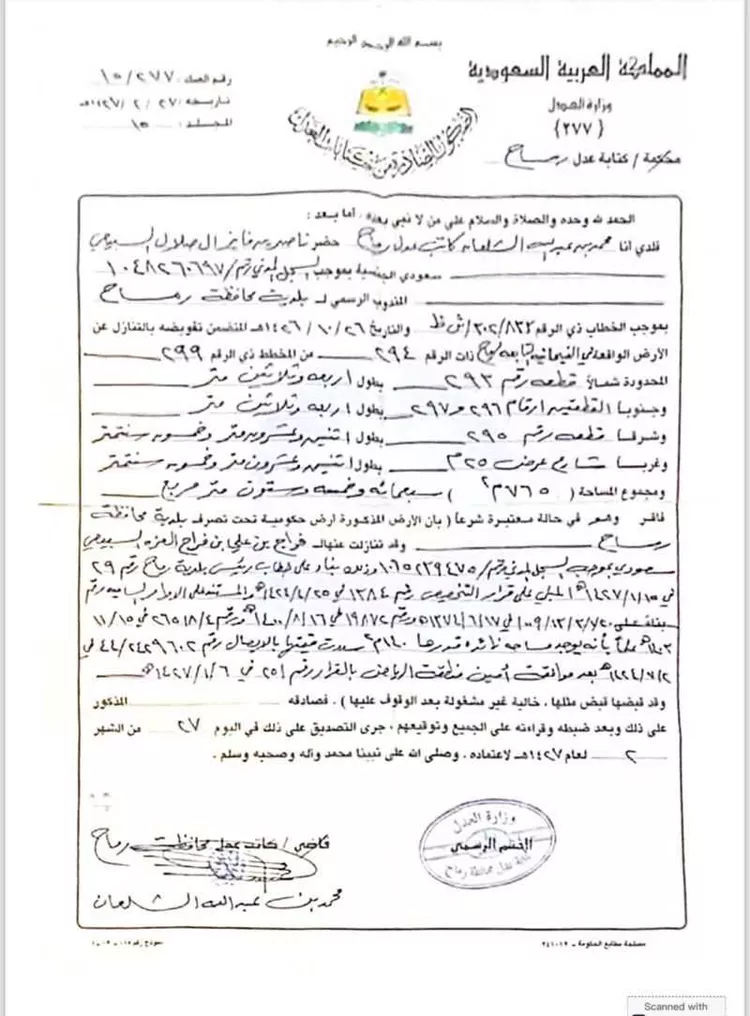 بسم الله الرحمن الرحيم
المملكة العربية السعودية
وزارة العدل
(٢٧٧)
محكمة / كتابة عدل رماح
رقم الصك: ١٥/٢٧٧
تاريخه: ٢٧ / ٢ / ١٤٢٧هـ
المجلد: ١٥
الحمد لله وحده والصلاة والسلام على من لا نبي بعده، أما بعد:
فلدي أنا محمد بن عبدالله الشلعان كاتب عدل رماح حضر ناصر بن فايز ال صلال السبيعي
سعودي الجنسية بموجب السجل المدني رقم/١٠٤٨٢٦٠٦٩٧
المندوب الرسمي لـ بلدية محافظة رماح
بموجب الخطاب ذي الرقم ٣٠٢/٨٣٢/ش ظ والتاريخ ٢٦ / ١٠ / ١٤٢٦هـ المتضمن تفويضه بالتنازل عن
الأرض الواقعة في التابعة لرماح ذات الرقم ٢٩٤ من المخطط ذي الرقم ٢٩٩
المحدودة شمالاً قطعه رقم ٢٩٣ بطول اربعه وثلاثين متر
وجنوبا القطعتين ارقام ٢٩٦ و ٢٩٧ بطول اربعه وثلاثون متر
وشرقا قطعه رقم ٢٩٥ بطول اثنين وعشرون متر وخمسون سنتمتر
وغربا شارع عرض ٢٥م بطول اثنين وعشرون متر وخمسون سنتمتر
ومجموع المساحة (٧٦٥م٢) سبعمائه وخمسه وستون متر مربع
فأقر وهو في حالة معتبرة شرعاً (بأن الأرض المذكورة أرض حكومية تحت تصرف بلدية محافظة
رماح وقد تنازلت عنها لـ فراج بن علي بن فراج العزه السبيعي
سعودي بموجب السجل المدني رقم/١٠٦٥٢٣٩٤٧٥ وذلك بناء على خطاب رئيس بلدية رماح رقم ٢٩
في ١٥/١/١٤٢٧هـ المبني على قرار التخصيص رقم ١٣٨٤ في ٢٥/٤/١٤٢٤هـ والمستند على الاوامر الساميه رقم
في ١٧/٦/١٣٧٤هـ ورقم ١٩٨٧٢ في ١٦/٨/١٤٠٠هـ ورقم ٢٦٥١٨/٤ في ١٥/١١
١٤٠٣هـ علماً بأنه يوجد مساحه زائده قدرها ١٤٠م٢ سددت قيمتها بالايصال رقم ٤٤/٢٤٢٩٦٠٢ في
٢/٧/١٤٢٤هـ بعد موافقة أمين منطقة الرياض بالقرار رقم ٢٥١ في ٦/١/١٤٢٧هـ
وقد قبضها قبض مثلها، خالية غير مشغولة بعد الوقوف عليها)، فصادقه المذكور
على ذلك وبعد ضبطه وقراءته على الجميع وتوقيعهم، جرى التصديق على ذلك في اليوم ٢٧ من الشهر
٢ لعام ١٤٢٧هـ لاعتماده، وصلى الله على نبينا محمد وآله وصحبه وسلم.
قاضي / كاتب عدل محافظة رماح
محمد بن عبدالله الشلعان
وزارة العدل
الختم الرسمي
كتابة عدل محافظة رماح
مصلحة مطابع الحكومة - ٢٤١٠١٢
Scanned with